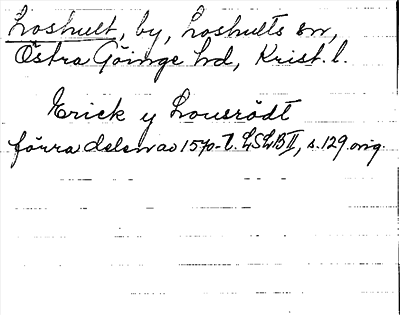 Loshult, by, Loshults sn,
Östra Göinge hd, Krist. l.
Erick y Lousrödt
förra delen av 1570-t. LSLB II, s. 129. orig.